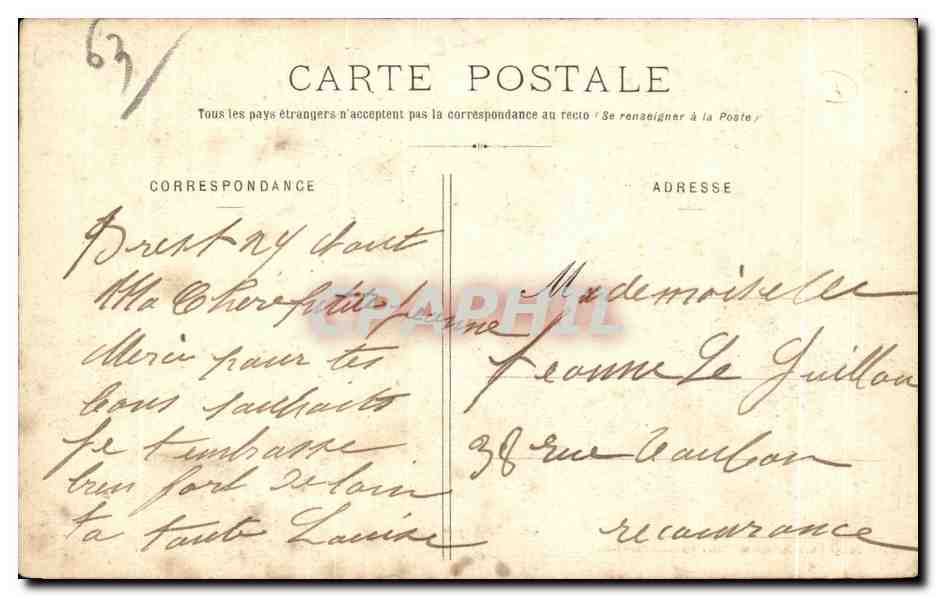 63/
CARTE POSTALE
Tous les pays étrangers n'acceptent pas la correspondance au recto (Se renseigner à la Poste)
CORRESPONDANCE
Brest Aout
Ma Chère petite Jeanne
Merci pour tes
bons souhaits
je t'embrasse
bien fort de loin
ta tante Louise
ADRESSE
Mademoiselle
Jeanne Le Guillou
38 rue Vauban
recouvrance
CPAPHIL